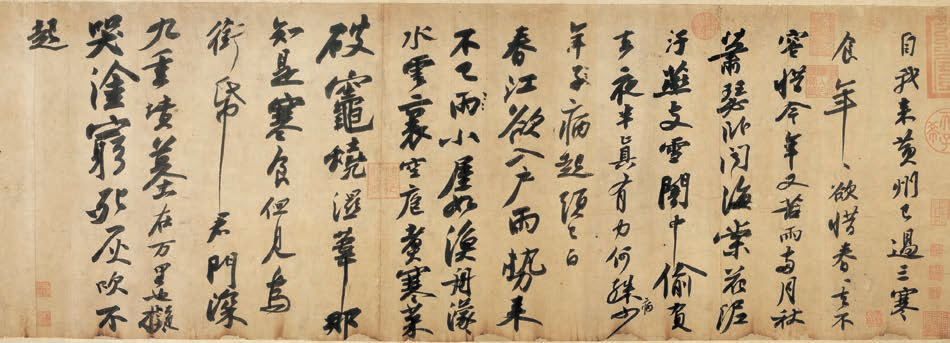 自我来黄州已過三寒
食年〻欲惜春〻去不
容惜今年又苦雨兩月秋
蕭瑟卧聞海棠花泥
汙燕支雪闇中偷負
去夜半真有力何殊病少
年子病起頭已白
春江欲入戶雨勢来
不已雨小屋如漁舟濛〻
水雲裏空庖煮寒菜
破竈燒濕葦那
知是寒食但見烏
銜帋君門深
九重墳墓在万里也擬
哭塗窮死灰吹不
起